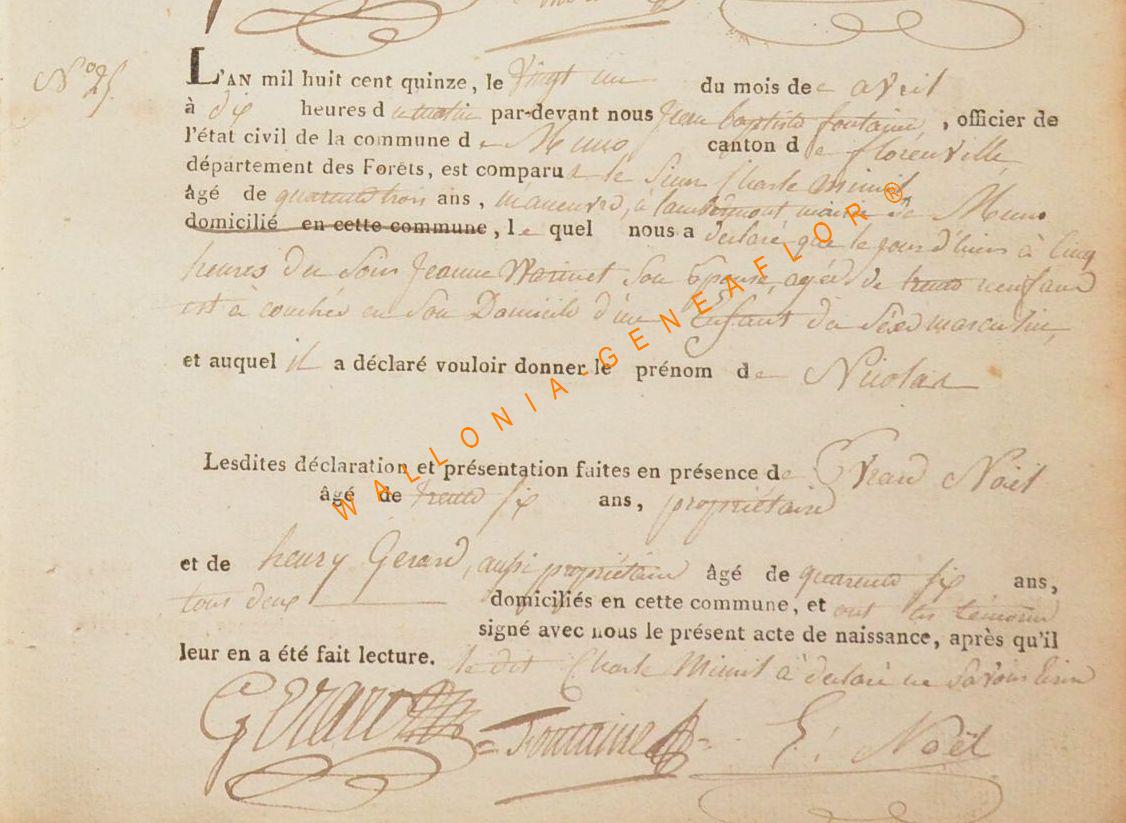 N.o 25
L'AN mil huit cent quinze, le Vingt un du mois de avril
à dix heures du matin par-devant nous Jean baptiste fontaine, officier de
l'état civil de la commune de Muno canton de florenville
département des Forêts, est comparu le Sieur Charle Minit
âgé de quarente trois ans, maneuvre, à mairie de Muno
domicilié en cette commune, le quel nous a declaré que le jour d'hier à Cinq
heures du Soir Jeanne Warinet Son Epouse, agée de trente neuf ans
est à couchée en Son Domicile d'une Enfant du Séxe masculin,
et auquel il a déclaré vouloir donner le prénom de Nicolas
Lesdites déclaration et présentation faites en présence de Evrard Noël
âgé de trente six ans, propriétaire
et de henry Gerard, aussi propriétaire âgé de quarente six ans,
tous deux domiciliés en cette commune, et ont les témoins
signé avec nous le présent acte de naissance, après qu'il
leur en a été fait lecture. le dit Charle Minit à declaré ne Savoir
Gerard Fontaine E: Noël
WALLONIA-GENEAFLOR ®